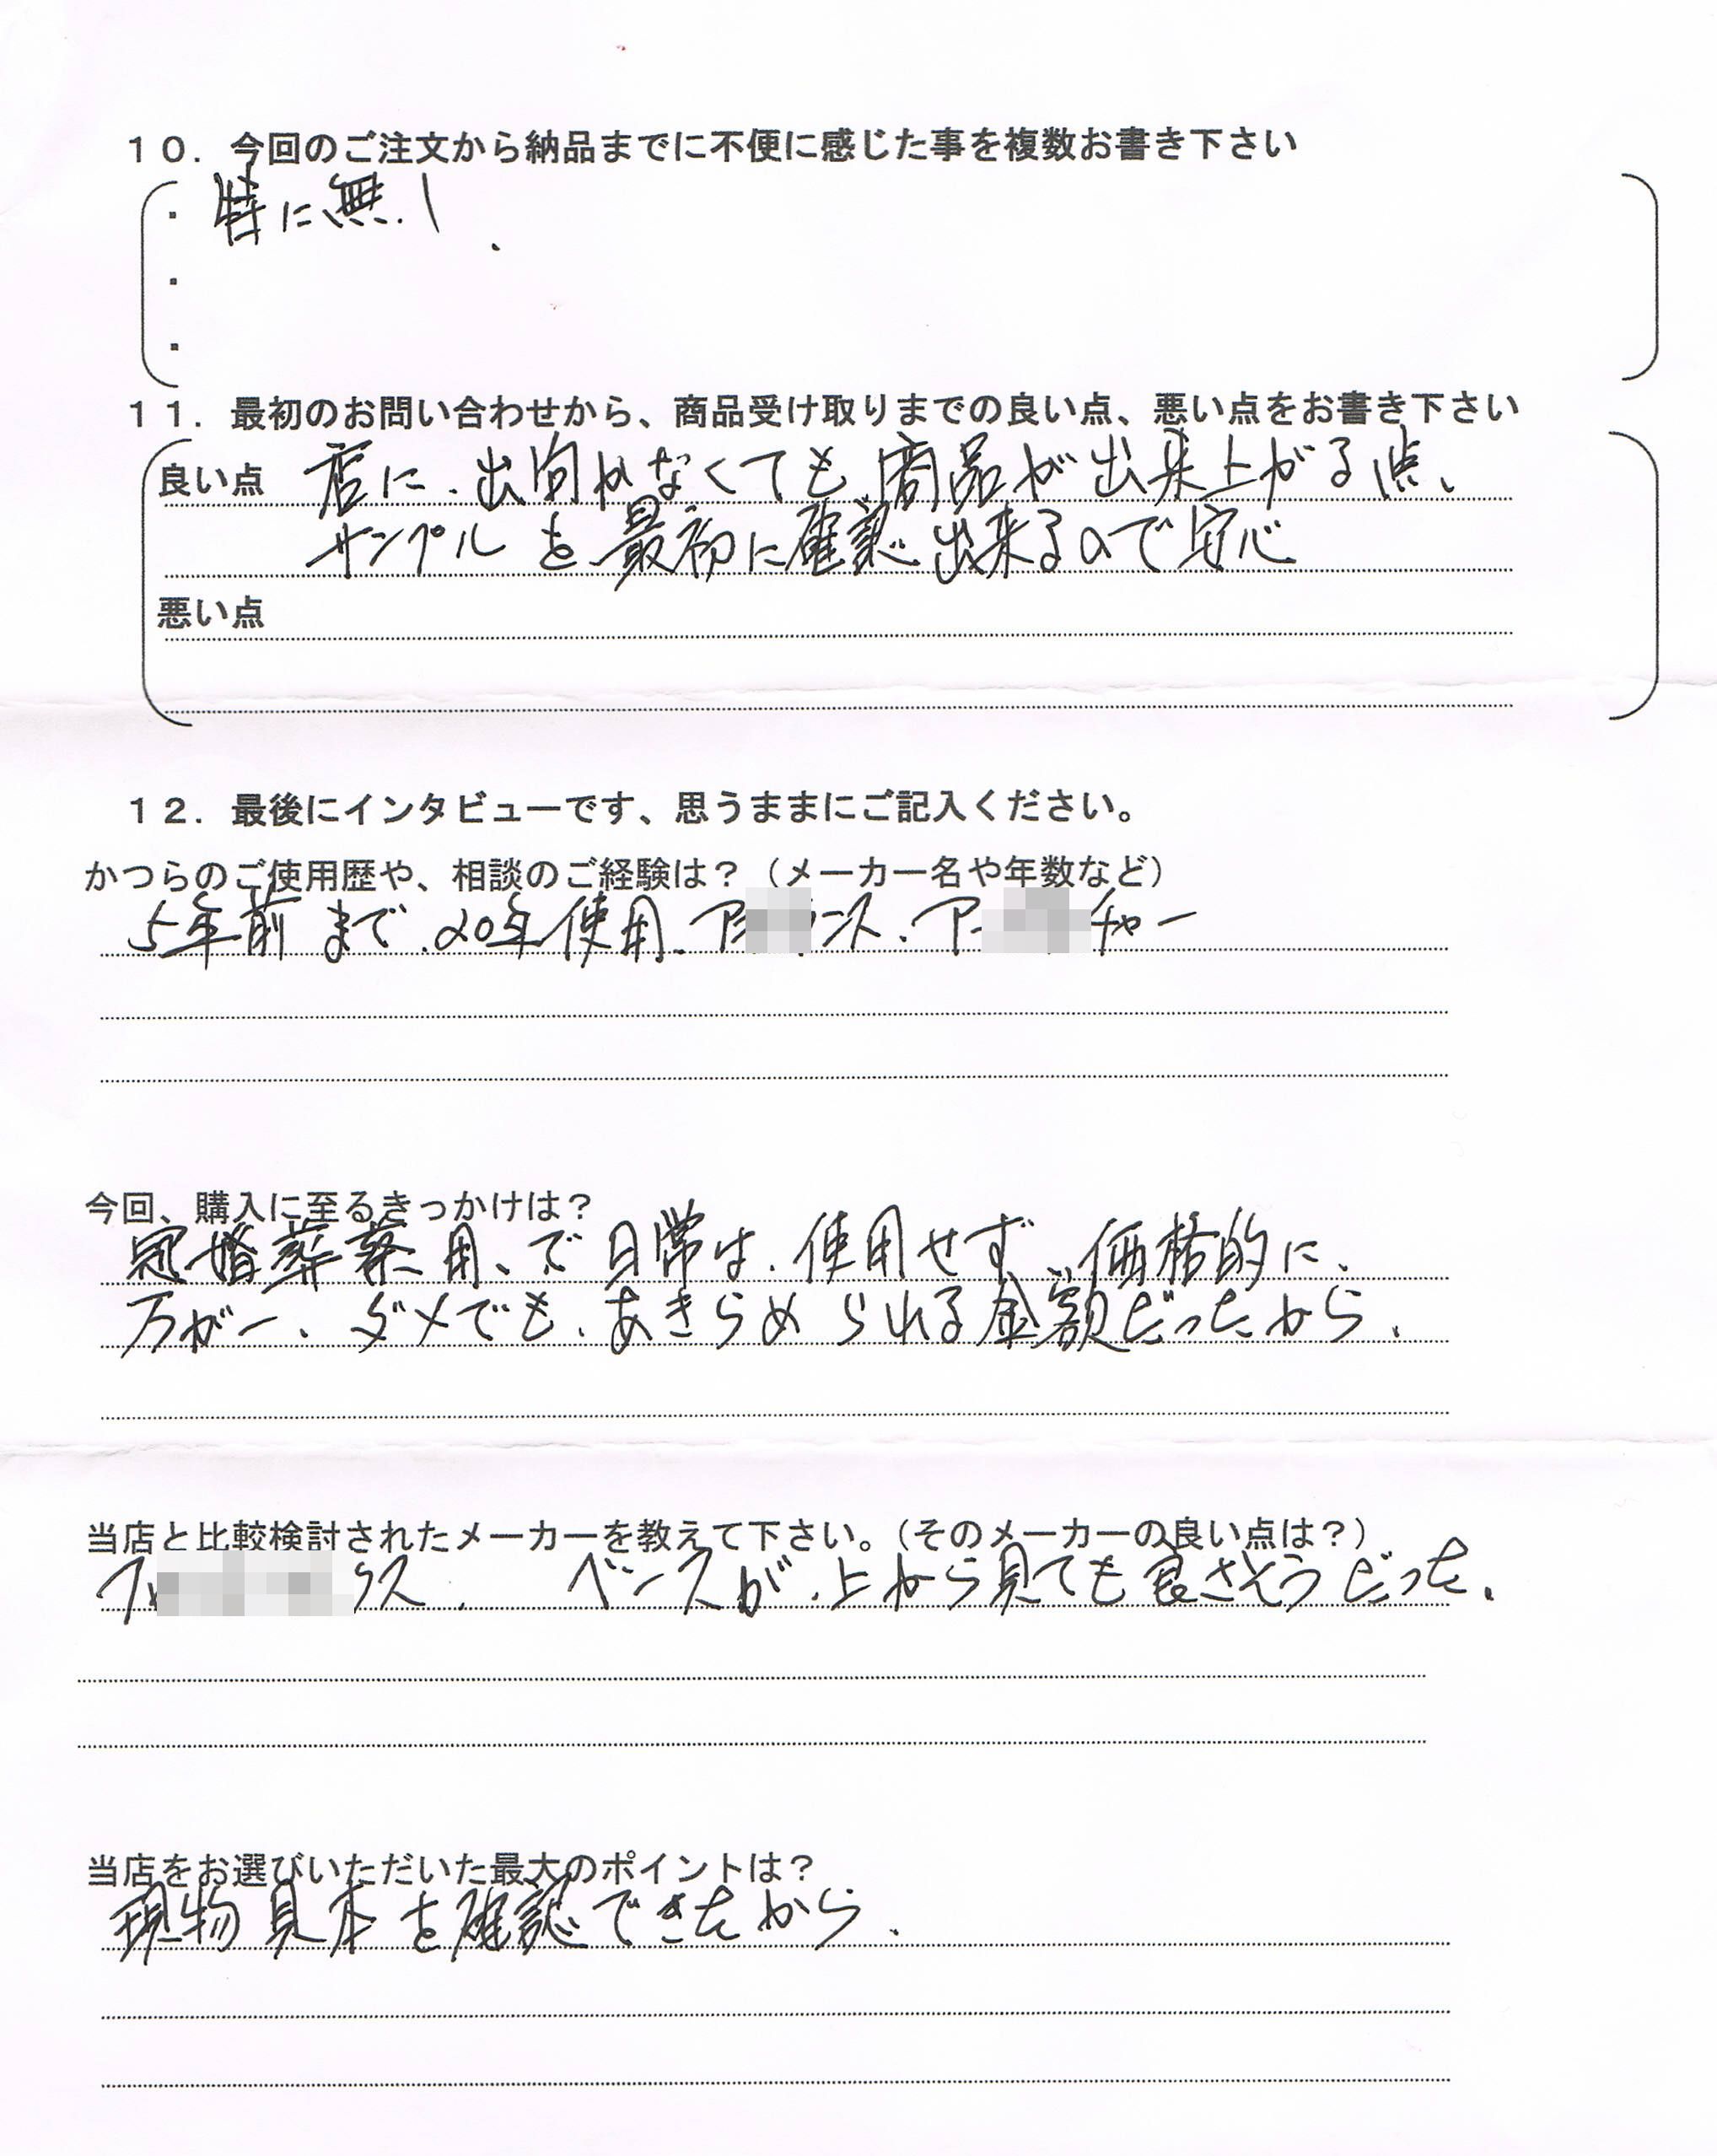 10．今回のご注文から納品までに不便に感じた事を複数お書き下さい
・特に無い.
・
・
11．最初のお問い合わせから、商品受け取りまでの良い点、悪い点をお書き下さい
良い点 店に、出向かなくても、商品が出来上がる点、
サンプルを最初に確認出来るので安心
悪い点
12．最後にインタビューです、思うままにご記入ください。
かつらのご使用歴や、相談のご経験は？（メーカー名や年数など）
5年前まで、20年使用、ア ンス、ア チャー
今回、購入に至るきっかけは？
冠婚葬祭用、で日常は、使用せず、価格的に、
万が一、ダメでも、あきらめられる金額だったから、
当店と比較検討されたメーカーを教えて下さい。（そのメーカーの良い点は？）
クス、 ベースが、上から見ても良さそうだった、
当店をお選びいただいた最大のポイントは？
現物見本を確認できたから、